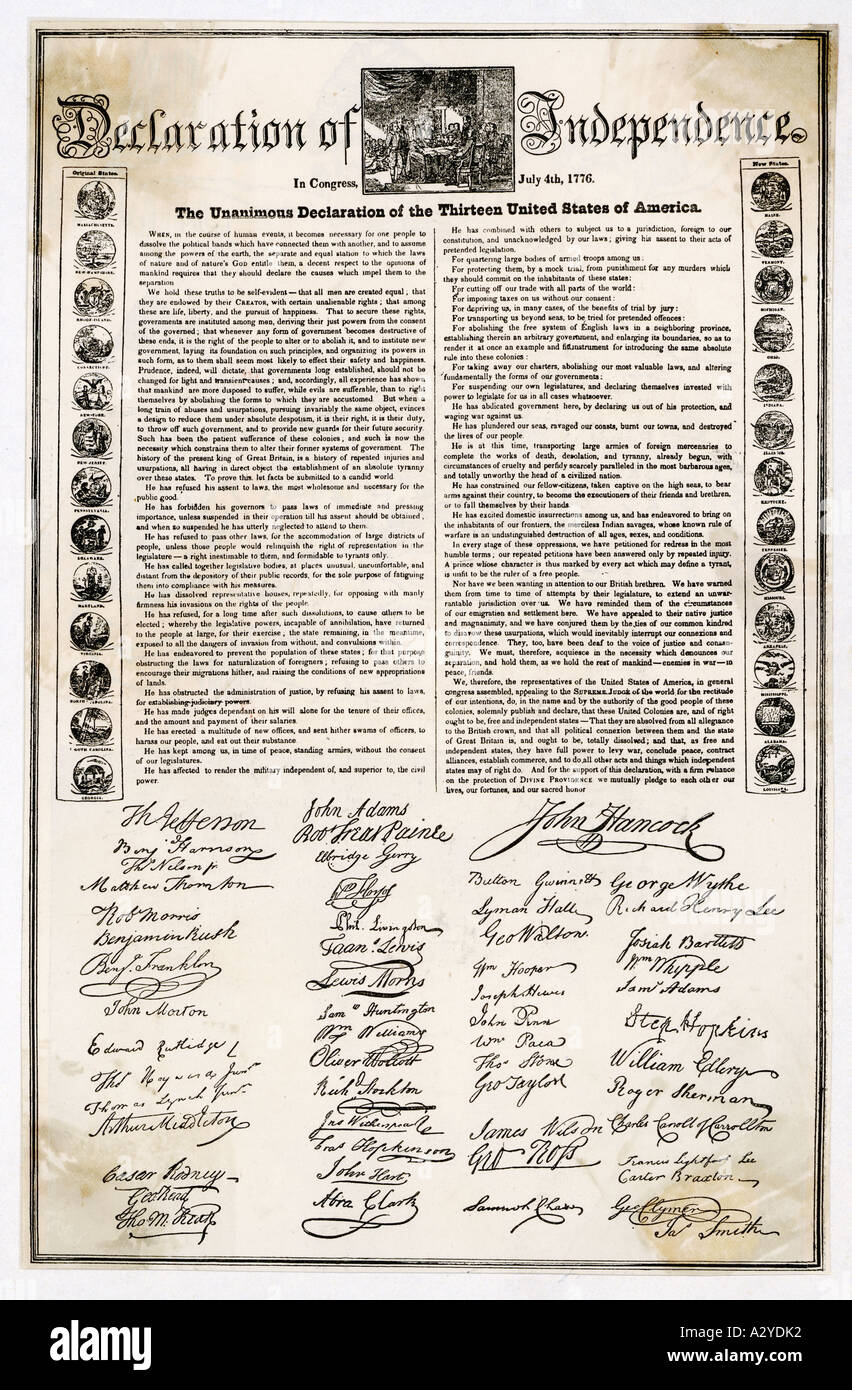 Declaration of Independence.
In Congress, July 4th, 1776.
The Unanimous Declaration of the Thirteen United States of America.
Original States.
MASSACHUSETTS.
NEW-HAMPSHIRE.
RHODE-ISLAND.
CONNECTICUT.
NEW-YORK.
NEW JERSEY.
PENNSYLVANIA.
DELAWARE.
MARYLAND.
VIRGINIA.
NORTH CAROLINA.
SOUTH CAROLINA.
GEORGIA.
WHEN, in the course of human events, it becomes necessary for one people to
dissolve the political bands which have connected them with another, and to assume
among the powers of the earth, the separate and equal station to which the laws
of nature and of nature's GOD entitle them, a decent respect to the opinions of
mankind requires that they should declare the causes which impel them to the
separation
We hold these truths to be self-evident — that all men are created equal; that
they are endowed by their CREATOR, with certain unalienable rights; that among
these are life, liberty, and the pursuit of happiness. That to secure these rights,
governments are instituted among men, deriving their just powers from the consent
of the governed; that whenever any form of government becomes destructive of
these ends, it is the right of the people to alter or to abolish it, and to institute new
government, laying its foundation on such principles, and organizing its powers in
such form, as to them shall seem most likely to effect their safety and happiness.
Prudence, indeed, will dictate, that governments long established, should not be
changed for light and transient causes; and, accordingly, all experience has shown
that mankind are more disposed to suffer, while evils are sufferable, than to right
themselves by abolishing the forms to which they are accustomed. But when a
long train of abuses and usurpations, pursuing invariably the same object, evinces
a design to reduce them under absolute despotism, it is their right, it is their duty,
to throw off such government, and to provide new guards for their future security.
Such has been the patient sufferance of these colonies; and such is now the
necessity which constrains them to alter their former systems of government. The
history of the present king of Great Britain, is a history of repeated injuries and
usurpations, all having in direct object the establishment of an absolute tyranny
over these states. To prove this, let facts be submitted to a candid world
He has refused his assent to laws, the most wholesome and necessary for the
public good.
He has forbidden his governors to pass laws of immediate and pressing
importance, unless suspended in their operation till his assent should be obtained,
and when so suspended he has utterly neglected to attend to them.
He has refused to pass other laws, for the accommodation of large districts of
people, unless those people would relinquish the right of representation in the
legislature — a right inestimable to them, and formidable to tyrants only.
He has called together legislative bodies, at places unusual, uncomfortable, and
distant from the depository of their public records, for the sole purpose of fatiguing
them into compliance with his measures.
He has dissolved representative houses, repeatedly, for opposing with manly
firmness his invasions on the rights of the people.
He has refused, for a long time after such dissolutions, to cause others to be
elected; whereby the legislative powers, incapable of annihilation, have returned
to the people at large, for their exercise; the state remaining, in the meantime,
exposed to all the dangers of invasion from without, and convulsions within.
He has endeavored to prevent the population of these states; for that purpose
obstructing the laws for naturalization of foreigners; refusing to pass others to
encourage their migrations hither, and raising the conditions of new appropriations
of lands.
He has obstructed the administration of justice, by refusing his assent to laws,
for establishing judiciary powers.
He has made judges dependant on his will alone for the tenure of their offices,
and the amount and payment of their salaries.
He has erected a multitude of new offices, and sent hither swams of officers, to
harass our people, and eat out their substance
He has kept among us, in time of peace, standing armies, without the consent
of our legislatures.
He has affected to render the military independent of, and superior to, the civil
power.
He has combined with others to subject us to a jurisdiction, foreign to our
constitution, and unacknowledged by our laws; giving his assent to their acts of
pretended legislation.
For quartering large bodies of armed troops among us:
For protecting them, by a mock trial, from punishment for any murders which
they should commit on the inhabitants of these states:
For cutting off our trade with all parts of the world:
For imposing taxes on us without our consent:
For depriving us, in many cases, of the benefits of trial by jury:
For transporting us beyond seas, to be tried for pretended offences:
For abolishing the free system of English laws in a neighboring province,
establishing therein an arbitrary government, and enlarging its boundaries, so as to
render it at once an example and fit instrument for introducing the same absolute
rule into these colonies:
For taking away our charters, abolishing our most valuable laws, and altering
fundamentally the forms of our governments:
For suspending our own legislatures, and declaring themselves invested with
power to legislate for us in all cases whatsoever.
He has abdicated government here, by declaring us out of his protection, and
waging war against us.
He has plundered our seas, ravaged our coasts, burnt our towns, and destroyed
the lives of our people.
He is at this time, transporting large armies of foreign mercenaries to
complete the works of death, desolation, and tyranny, already begun, with
circumstances of cruelty and perfidy scarcely paralleled in the most barbarous ages,
and totally unworthy the head of a civilized nation.
He has constrained our fellow-citizens, taken captive on the high seas, to bear
arms against their country, to become the executioners of their friends and brethren,
or to fall themselves by their hands.
He has excited domestic insurrections among us, and has endeavored to bring on
the inhabitants of our frontiers, the merciless Indian savages, whose known rule of
warfare is an undistinguished destruction of all ages, sexes, and conditions.
In every stage of these oppressions, we have petitioned for redress in the most
humble terms; our repeated petitions have been answered only by repeated injury.
A prince whose character is thus marked by every act which may define a tyrant,
is unfit to be the ruler of a free people.
Nor have we been wanting in attention to our British brethren. We have warned
them from time to time of attempts by their legislature, to extend an unwar-
rantable jurisdiction over us. We have reminded them of the circumstances
of our emigration and settlement here. We have appealed to their native justice
and magnanimity, and we have conjured them by the ties of our common kindred
to disavow these usurpations, which would inevitably interrupt our connexions and
correspondence. They, too, have been deaf to the voice of justice and consan-
guinity. We must, therefore, acquiesce in the necessity which denounces our
separation, and hold them, as we hold the rest of mankind—enemies in war—in
peace, friends.
We, therefore, the representatives of the United States of America, in general
congress assembled, appealing to the SUPREME JUDGE of the world for the rectitude
of our intentions, do, in the name and by the authority of the good people of these
colonies, solemnly publish and declare, that these United Colonies are, and of right
ought to be, free and independent states—That they are absolved from all allegiance
to the British crown, and that all political connexion between them and the state
of Great Britain is, and ought to be, totally dissolved; and that, as free and
independent states, they have full power to levy war, conclude peace, contract
alliances, establish commerce, and to do all other acts and things which independent
states may of right do. And for the support of this declaration, with a firm reliance
on the protection of DIVINE PROVIDENCE we mutually pledge to each other our
lives, our fortunes, and our sacred honor
New States.
MAINE.
VERMONT.
MICHIGAN.
OHIO.
INDIANA.
ILLINOIS.
KENTUCKY.
TENNESSEE.
MISSOURI.
ARKANSAS.
MISSISSIPPI.
ALABAMA.
LOUISIANA.
Th Jefferson
Benj Harrison
Thos Nelson jr
Matthew Thornton
Robt Morris
Benjamin Rush
Benj. Franklin
John Morton
Edward Rutledge
Thos Heyward Junr
Thomas Lynch Junr
Arthur Middleton
Cesar Rodney
Geo Read
Tho M. Kean
John Adams
Robt Treat Paine
Elbridge Gerry
Wm Floyd
Phil. Livingston
Frans. Lewis
Lewis Morris
Saml Huntington
Wm Williams
Oliver Wolcott
Richd Stockton
Jno Witherspoon
Fras Hopkinson
John Hart
Abra Clark
John Hancock
Button Gwinnett
Lyman Hall
Geo Walton.
Wm Hooper
Joseph Hewes
John Penn
Wm Paca
Thos Stone
Geo Taylor
James Wilson
Geo Ross
Samuel Chase
George Wythe
Richard Henry Lee
Josiah Bartlett
Wm Whipple
Saml Adams
Step Hopkins
William Ellery
Roger Sherman
Charles Carroll of Carrollton
Francis Lightfoot Lee
Carter Braxton
Geo Clymer
Jas Smith
alamy
Image ID: A2YDK2
www.alamy.com